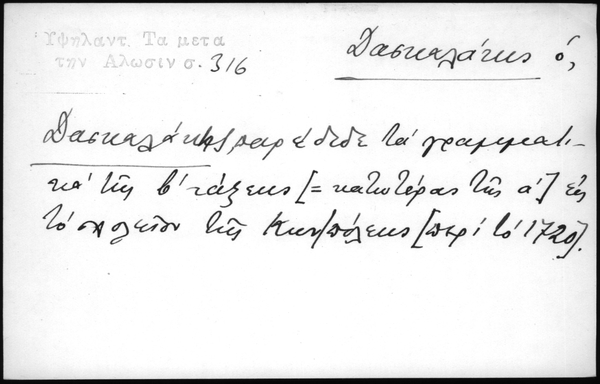 Ὑψηλαντ. Τα μετα
την Αλωσιν σ. 316
Δασκαλάκης ὁ,
Δασκαλάκης, παρέδιδε τὰ γραμματι-
κὰ τῆς β΄ τάξεως [= κατωτέρας τῆς α΄] εἰς
τὸ σχολεῖον τῆς Κων/πόλεως [περὶ τὸ 1720].